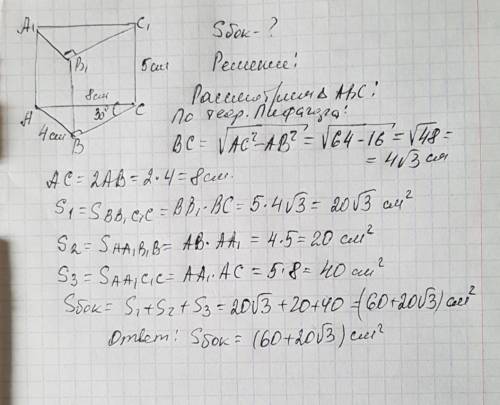 A₁ C₁
B₁
5см
8см
A 30° C
4см
B
Sбок - ?
Решение:
Рассмотрим Δ ABC:
По теор. Пифагора:
BC = √AC² - AB² = √64 - 16 = √48 =
= 4√3 см
AC = 2AB = 2 · 4 = 8 см.
S₁ = S_BB₁C₁C = BB₁ · BC = 5 · 4√3 = 20√3 см²
S₂ = S_AA₁B₁B = AB · AA₁ = 4 · 5 = 20 см²
S₃ = S_AA₁C₁C = AA₁ · AC = 5 · 8 = 40 см²
Sбок = S₁ + S₂ + S₃ = 20√3 + 20 + 40 = (60 + 20√3) см²
Ответ: Sбок = (60 + 20√3) см²